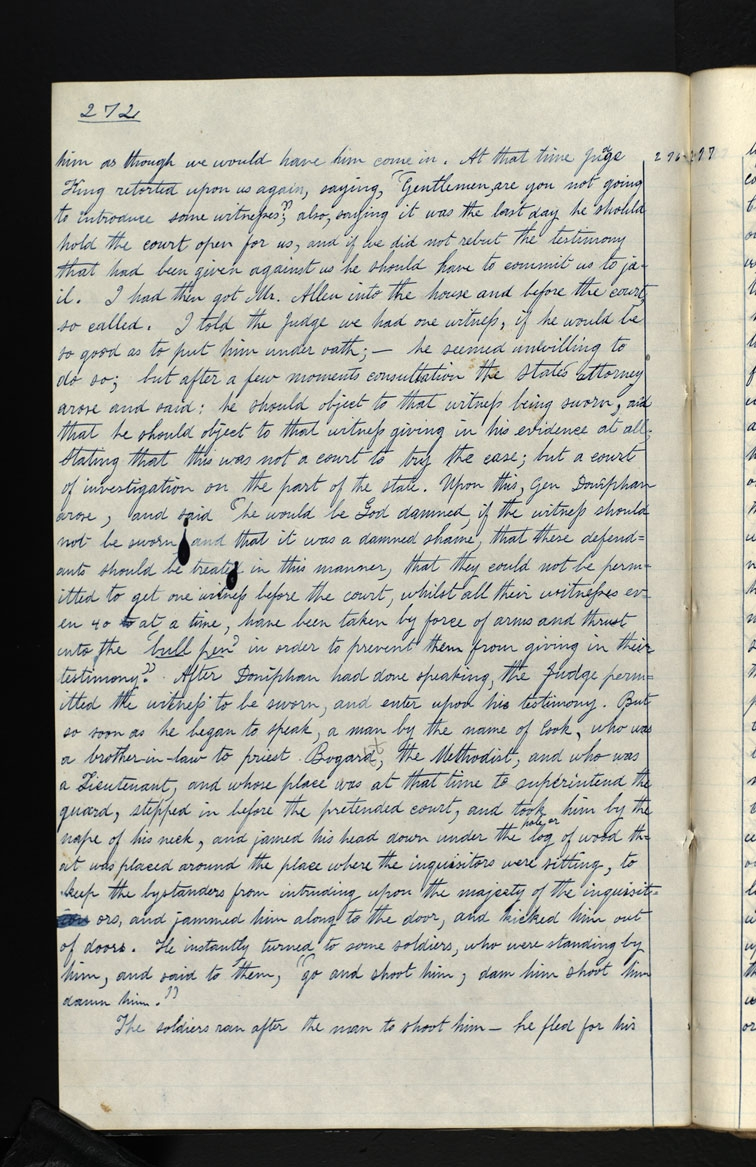 272
him as though we would have him come in. At that time Judge
King retorted upon us again, saying, "Gentlemen, are you not going
to introduce some witnesses"; also, saying it was the last day he should
hold the court open for us, and if we did not rebut the testimony
that had been given against us he should have to commit us to ja-
il. I had then got Mr. Allen into the house and before the court,
so called. I told the Judge we had one witness, if he would be
so good as to put him under oath; — he seemed unwilling to
do so; but after a few moments consultation the states attorney
arose and said: he should object to that witness being sworn, and
that he should object to that witness giving in his evidence at all,
stating that this was not a court to try the case; but a court
of investigation on the part of the state. Upon this, Gen Doniphan
arose, and said "he would be God damned, if the witness should
not be sworn and that it was a damned shame, that these defend=
ants should be treated in this manner, that they could not be perm-
itted to get one witness before the court, whilst all their witnesses ev-
en 40 at a time, have been taken by force of arms and thrust
into the "bull pen" in order to prevent them from giving in their
testimony". After Doniphan had done speaking, the Judge perm=
itted the witness to be sworn, and enter upon his testimony. But
so soon as he began to speak, a man by the name of Cook, who was
a brother-in-law to priest Bogard, the Methodist, and who was
a Lieutenant, and whose place was at that time to superintend the
guard, stepped in before the pretended court, and took him by the
nape of his neck, and jamed his head down under the pole, or log of wood th=
at was placed around the place where the inquisitors were sitting, to
keep the bystanders from intruding upon the majesty of the inquisit-
ors, and jammed him along to the door, and kicked him out
of doors. He instantly turned to some soldiers, who were standing by
him, and said to them, "go and shoot him; dam him shoot him
damn him."
The soldiers ran after the man to shoot him — he fled for his